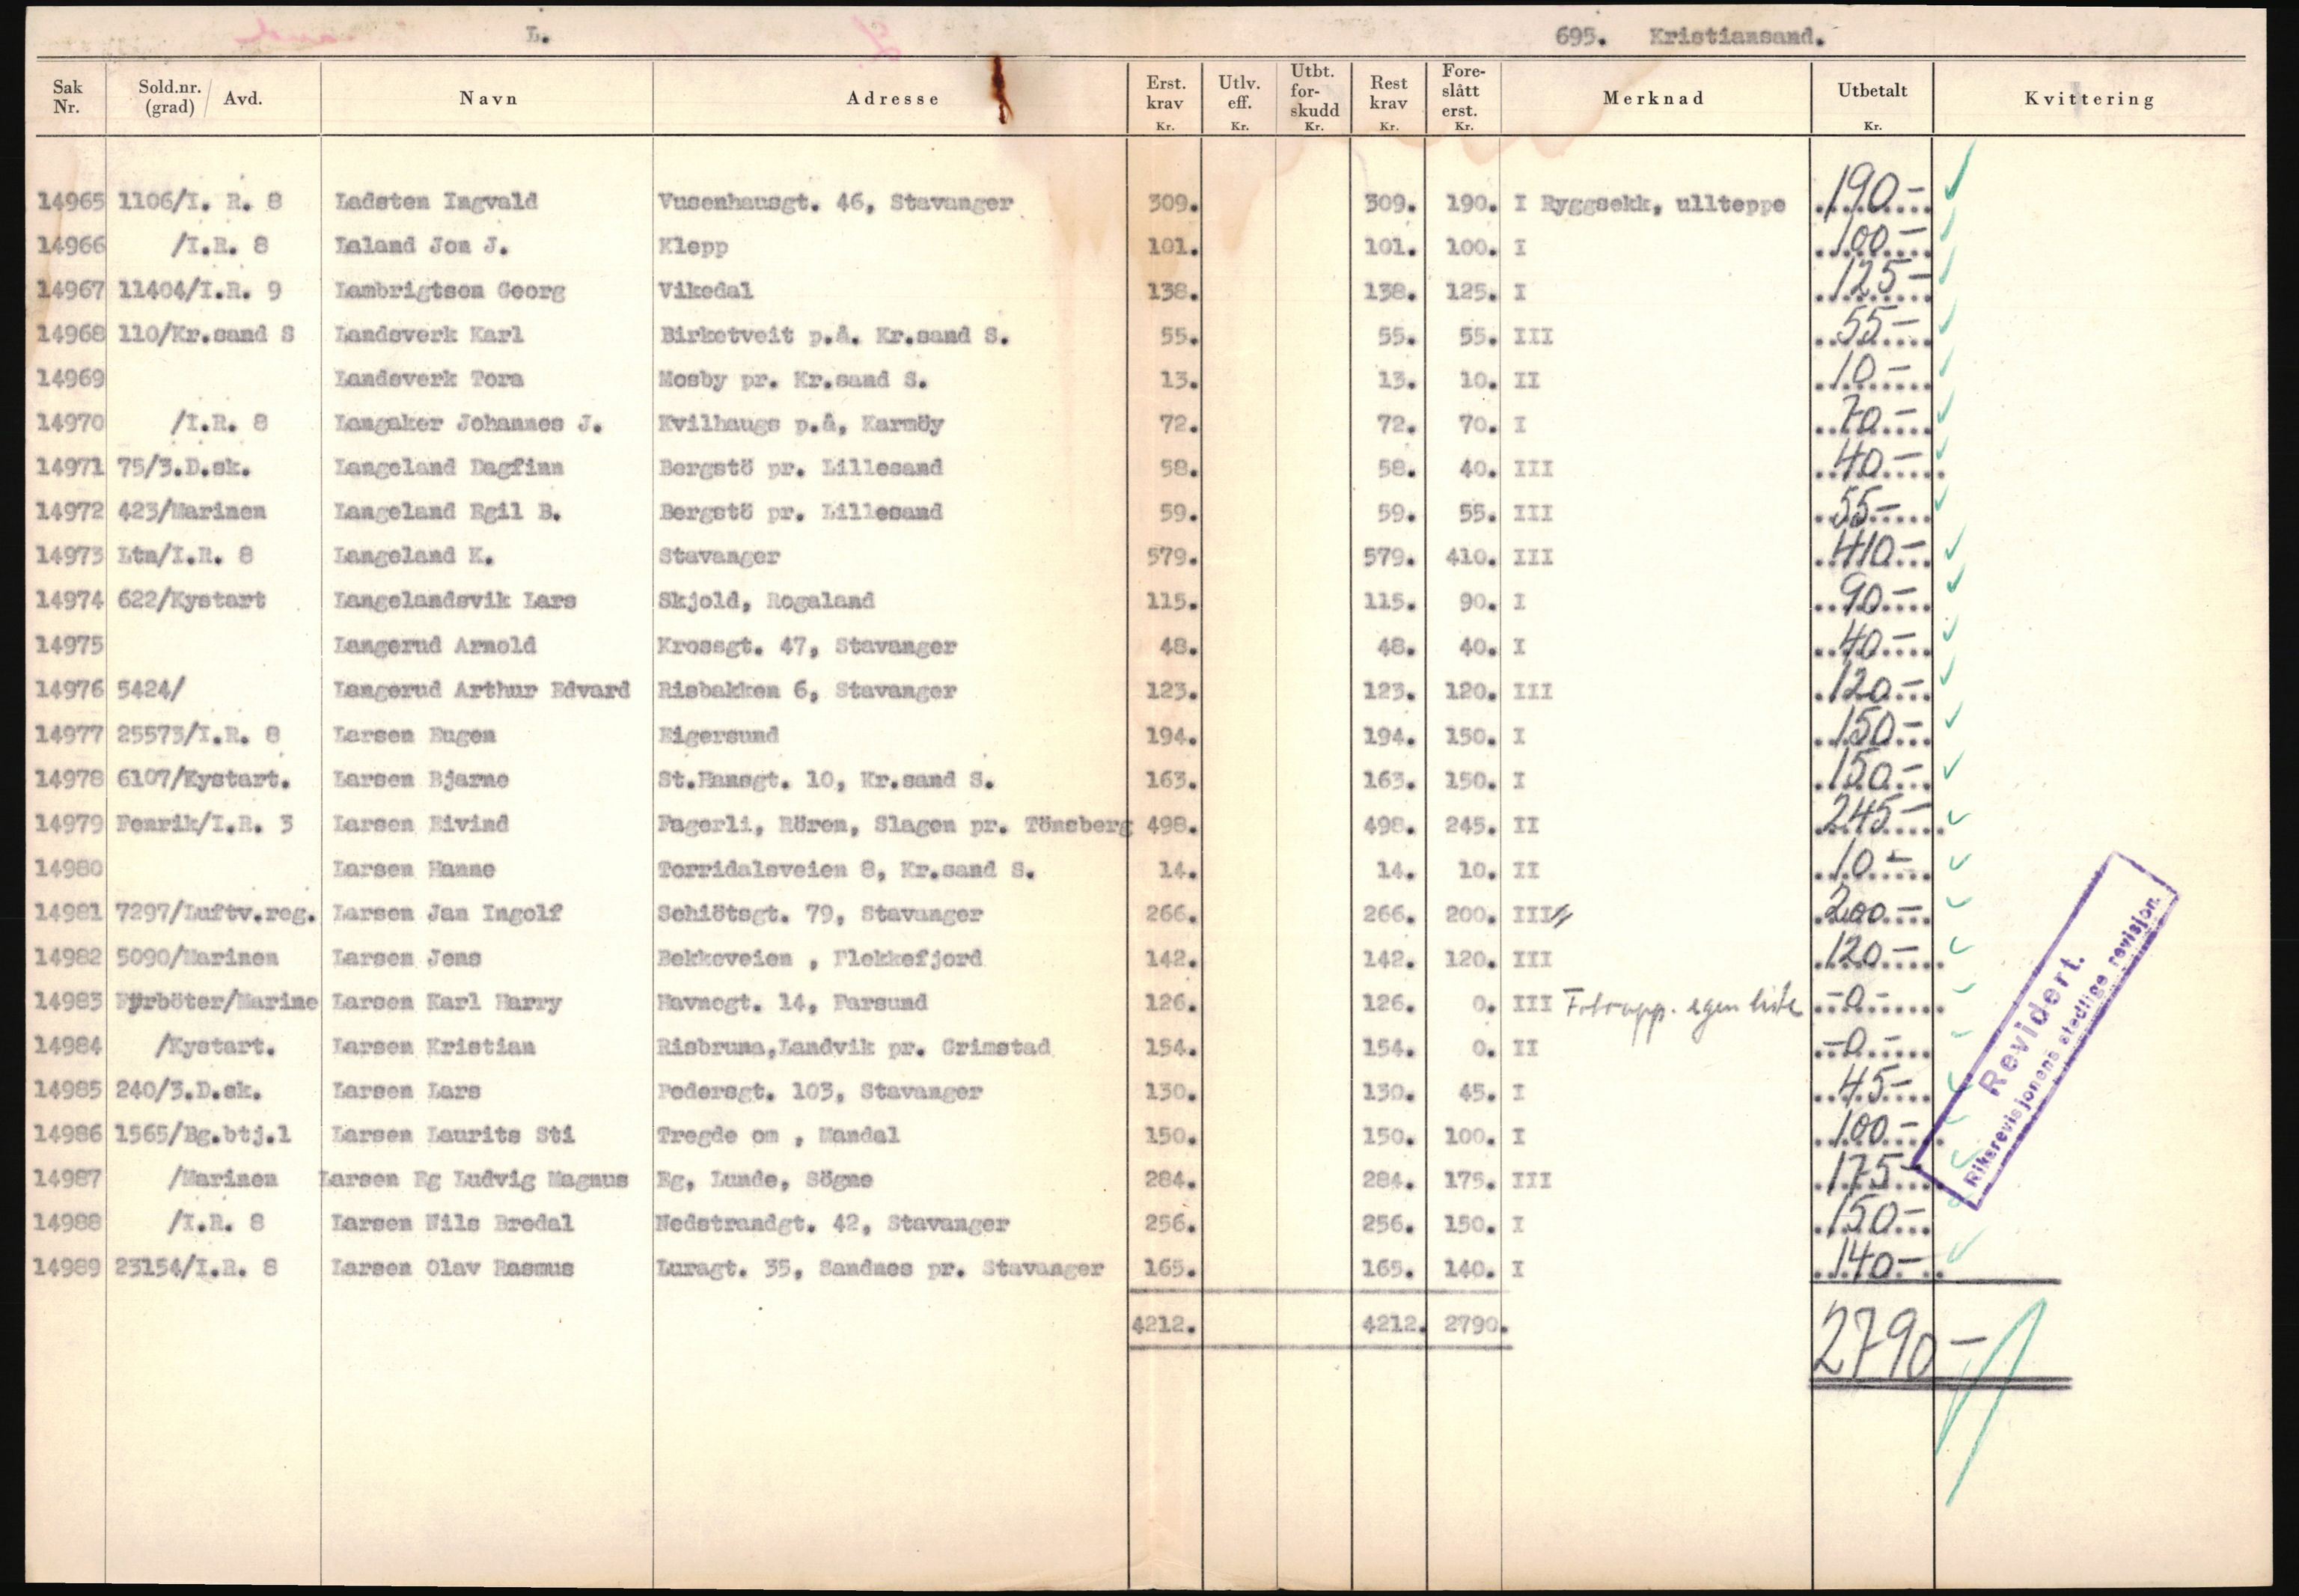 L. 695. Kristiansand.
Sak Nr. Sold.nr. (grad) / Avd. Navn Adresse Erst. krav Kr. Utlv. eff. Kr. Utbt. for- skudd Kr. Rest krav Kr. Fore- slått erst. Kr. Merknad Utbetalt Kr. Kvittering
14965 1106/I. R. 8 Ladsten Ingvald Vusenhausgt. 46, Stavanger 309. 309. 190. I Ryggsekk, ullteppe 190-
14966 /I.R. 8 Laland Jon J. Klepp 101. 101. 100. I 100-
14967 11404/I.R. 9 Lambrigtsen Georg Vikedal 138. 138. 125. I 125-
14968 110/Kr.sand S Landsverk Karl Birketveit p.å. Kr.sand S. 55. 55. 55. III 55-
14969 Landsverk Tora Mosby pr. Kr.sand S. 13. 13. 10. II 10-
14970 /I.R. 8 Langaker Johannes J. Kvilhaugs p.å, Karmöy 72. 72. 70. I 70-
14971 75/3.D.sk. Langeland Dagfinn Bergstö pr. Lillesand 58. 58. 40. III 40-
14972 423/Marinen Langeland Egil B. Bergstö pr. Lillesand 59. 59. 55. III 55-
14973 Ltn/I.R. 8 Langeland K. Stavanger 579. 579. 410. III 410-
14974 622/Kystart Langelandsvik Lars Skjold, Rogaland 115. 115. 90. I 90-
14975 Langerud Arnold Krossgt. 47, Stavanger 48. 48. 40. I 40-
14976 5424/ Langerud Arthur Edvard Risbakken 6, Stavanger 123. 123. 120. III 120-
14977 25573/I.R. 8 Larsen Eugen Eigersund 194. 194. 150. I 150-
14978 6107/Kystart. Larsen Bjarne St.Hansgt. 10, Kr.sand S. 163. 163. 150. I 150-
14979 Fenrik/I.R. 3 Larsen Eivind Fagerli, Rören, Slagen pr. Tönsberg 498. 498. 245. II 245-
14980 Larsen Hanne Torridalsveien 8, Kr.sand S. 14. 14. 10. II 10-
14981 7297/Luftv.reg. Larsen Jan Ingolf Schiötsgt. 79, Stavanger 266. 266. 200. III 200-
14982 5090/Marinen Larsen Jens Bekkeveien , Flekkefjord 142. 142. 120. III 120-
14983 Fyrböter/Marine Larsen Karl Harry Havnegt. 14, Farsund 126. 126. 0. III egen liste -0-
14984 /Kystart. Larsen Kristian Risbruna,Landvik pr. Grimstad 154. 154. 0. II -0-
14985 240/3.D.sk. Larsen Lars Pedersgt. 103, Stavanger 130. 130. 45. I 45-
14986 1565/Bg.btj.1 Larsen Laurits Sti Tregde om , Mandal 150. 150. 100. I 100-
14987 /Marinen Larsen Eg Ludvig Magnus Eg, Lunde, Sögne 284. 284. 175. III 175-
14988 /I.R. 8 Larsen Nils Bredal Nedstrandgt. 42, Stavanger 256. 256. 150. I 150-
14989 23154/I.R. 8 Larsen Olav Rasmus Luragt. 35, Sandnes pr. Stavanger 165. 165. 140. I 140-
4212. 4212. 2790. 2790-
Revidert.
Riksrevisjonens stedlige revisjon.